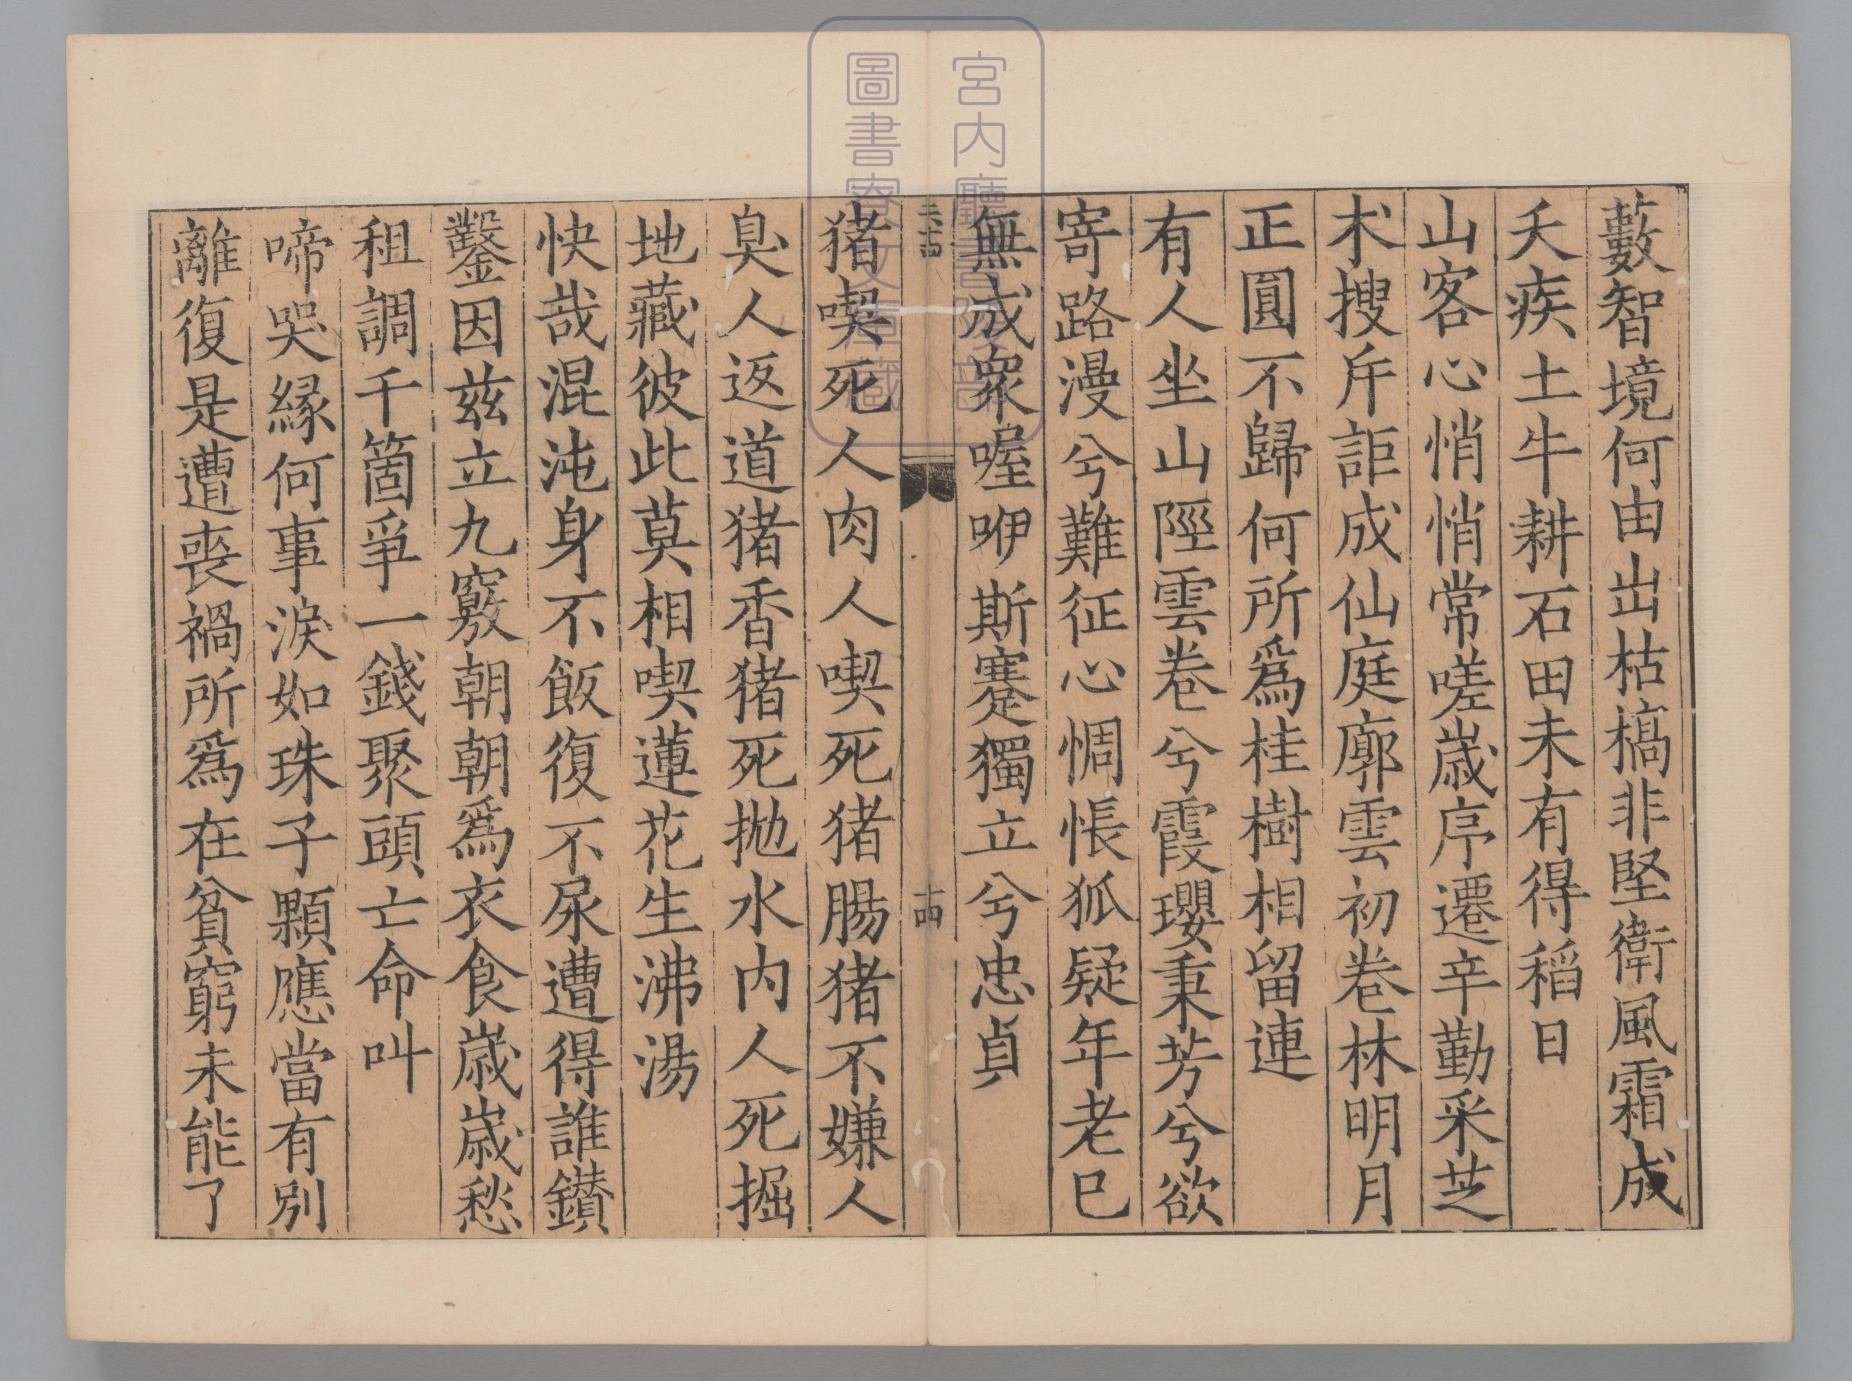 藪智境何由出枯槁非堅衛風霜成
夭疾土牛耕石田未有得稻日
山客心悄悄常嗟歲序遷辛勤采芝
朮搜斥詎成仙庭廓雲初卷林明月
正圓不歸何所爲桂樹相留連
有人坐山陘雲卷兮霞瓔秉芳兮欲
寄路漫兮難征心惆悵狐疑年老已
無成衆喔咿斯蹇獨立兮忠貞
十四
猪喫死人肉人喫死猪腸猪不嫌人
臭人返道猪香猪死抛水內人死掘
地藏彼此莫相喫蓮花生沸湯
快哉混沌身不飯復不尿遭得誰鑚
鑿因茲立九竅朝朝爲衣食歲歲愁
租調千箇爭一錢聚頭亡命叫
啼哭緣何事淚如珠子顆應當有別
離復是遭喪禍所爲在貧窮未能了
宮內廳書陵部
圖書寮文庫藏